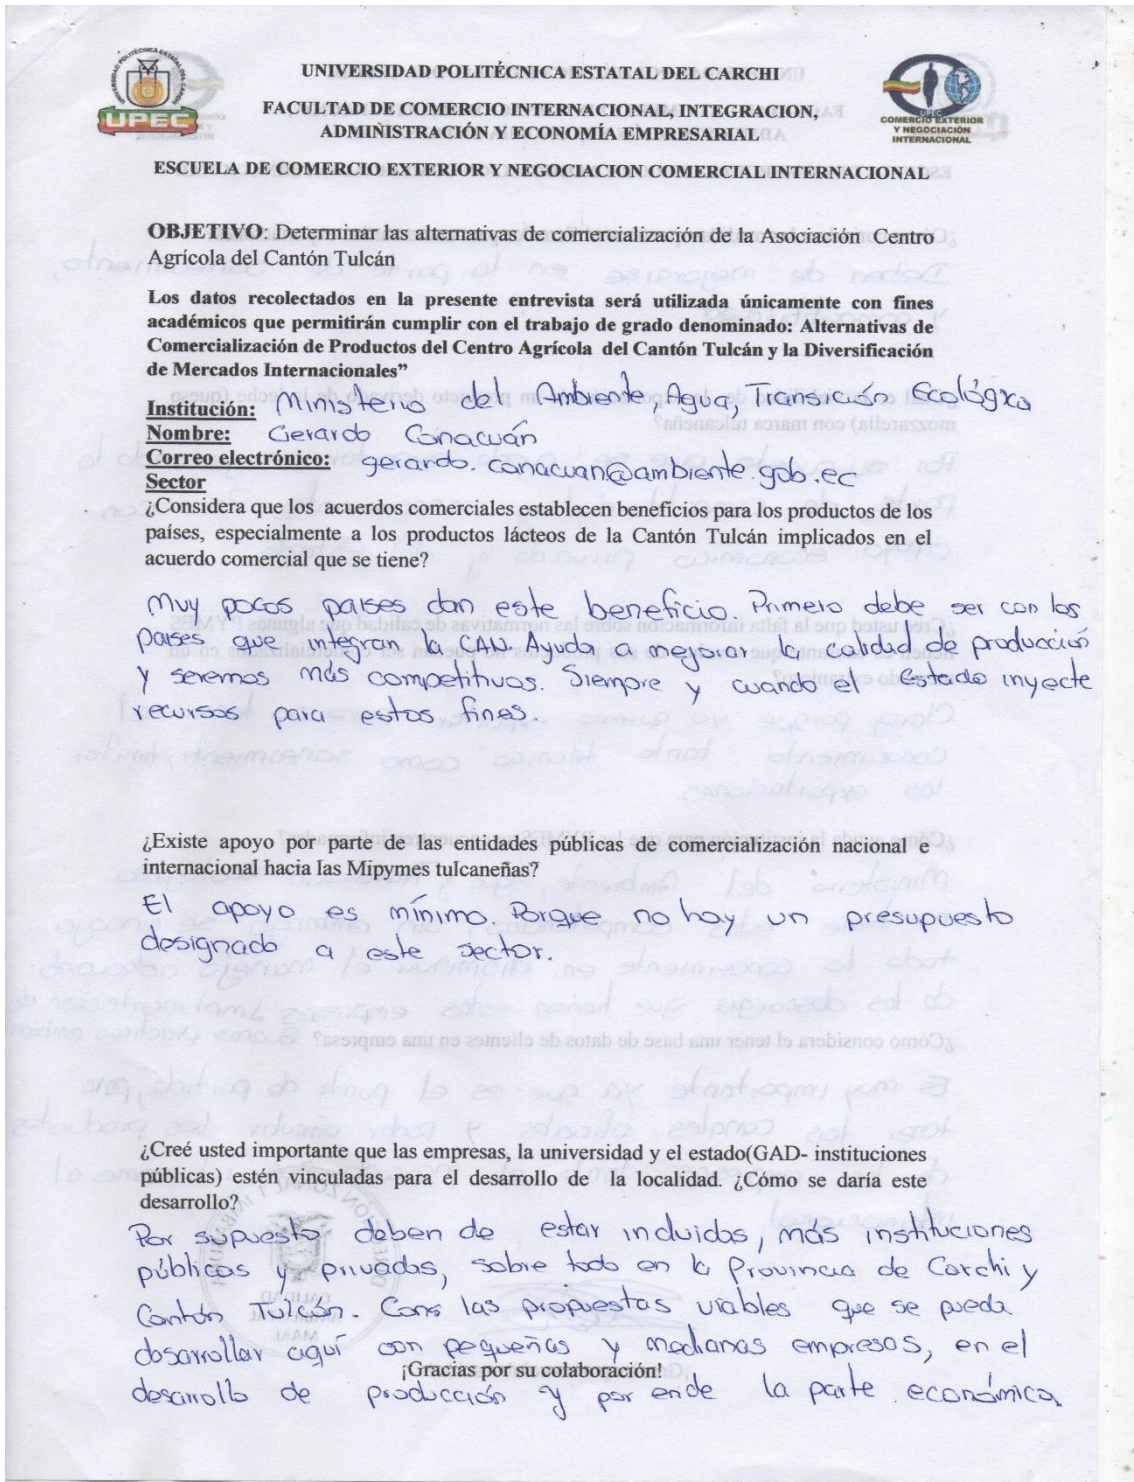 UNIVERSIDAD POLITÉCNICA ESTATAL DEL CARCHI
FACULTAD DE COMERCIO INTERNACIONAL, INTEGRACION,
ADMINISTRACIÓN Y ECONOMÍA EMPRESARIAL
ESCUELA DE COMERCIO EXTERIOR Y NEGOCIACION COMERCIAL INTERNACIONAL
UPEC
UPEC
COMERCIO EXTERIOR
Y NEGOCIACIÓN
INTERNACIONAL
OBJETIVO: Determinar las alternativas de comercialización de la Asociación Centro
Agrícola del Cantón Tulcán
Los datos recolectados en la presente entrevista será utilizada únicamente con fines
académicos que permitirán cumplir con el trabajo de grado denominado: Alternativas de
Comercialización de Productos del Centro Agrícola del Cantón Tulcán y la Diversificación
de Mercados Internacionales”
Institución: Ministerio del Ambiente, Agua, Transición Ecológica
Nombre: Gerardo Canacuán
Correo electrónico: gerardo.canacuan@ambiente.gob.ec
Sector
¿Considera que los acuerdos comerciales establecen beneficios para los productos de los
países, especialmente a los productos lácteos de la Cantón Tulcán implicados en el
acuerdo comercial que se tiene?
Muy pocos paises dan este beneficio. Primero debe ser con los
paises que integran la CAN. Ayuda a mejorar la calidad de producción
y seremos más competitivos. Siempre y cuando el Estado inyecte
recursos para estos fines.
¿Existe apoyo por parte de las entidades públicas de comercialización nacional e
internacional hacia las Mipymes tulcaneñas?
El apoyo es mínimo. Porque no hay un presupuesto
designado a este sector.
¿Creé usted importante que las empresas, la universidad y el estado(GAD- instituciones
públicas) estén vinculadas para el desarrollo de la localidad. ¿Cómo se daría este
desarrollo?
Por supuesto deben de estar incluidas, más instituciones
públicas y privadas, sobre todo en la Provincia de Carchi y
Cantón Tulcán. Cons las propuestas viables que se pueda
desarrollar aquí con pequeñas y medianas empresas, en el
¡Gracias por su colaboración!
desarrollo de producción y por ende la parte económica.